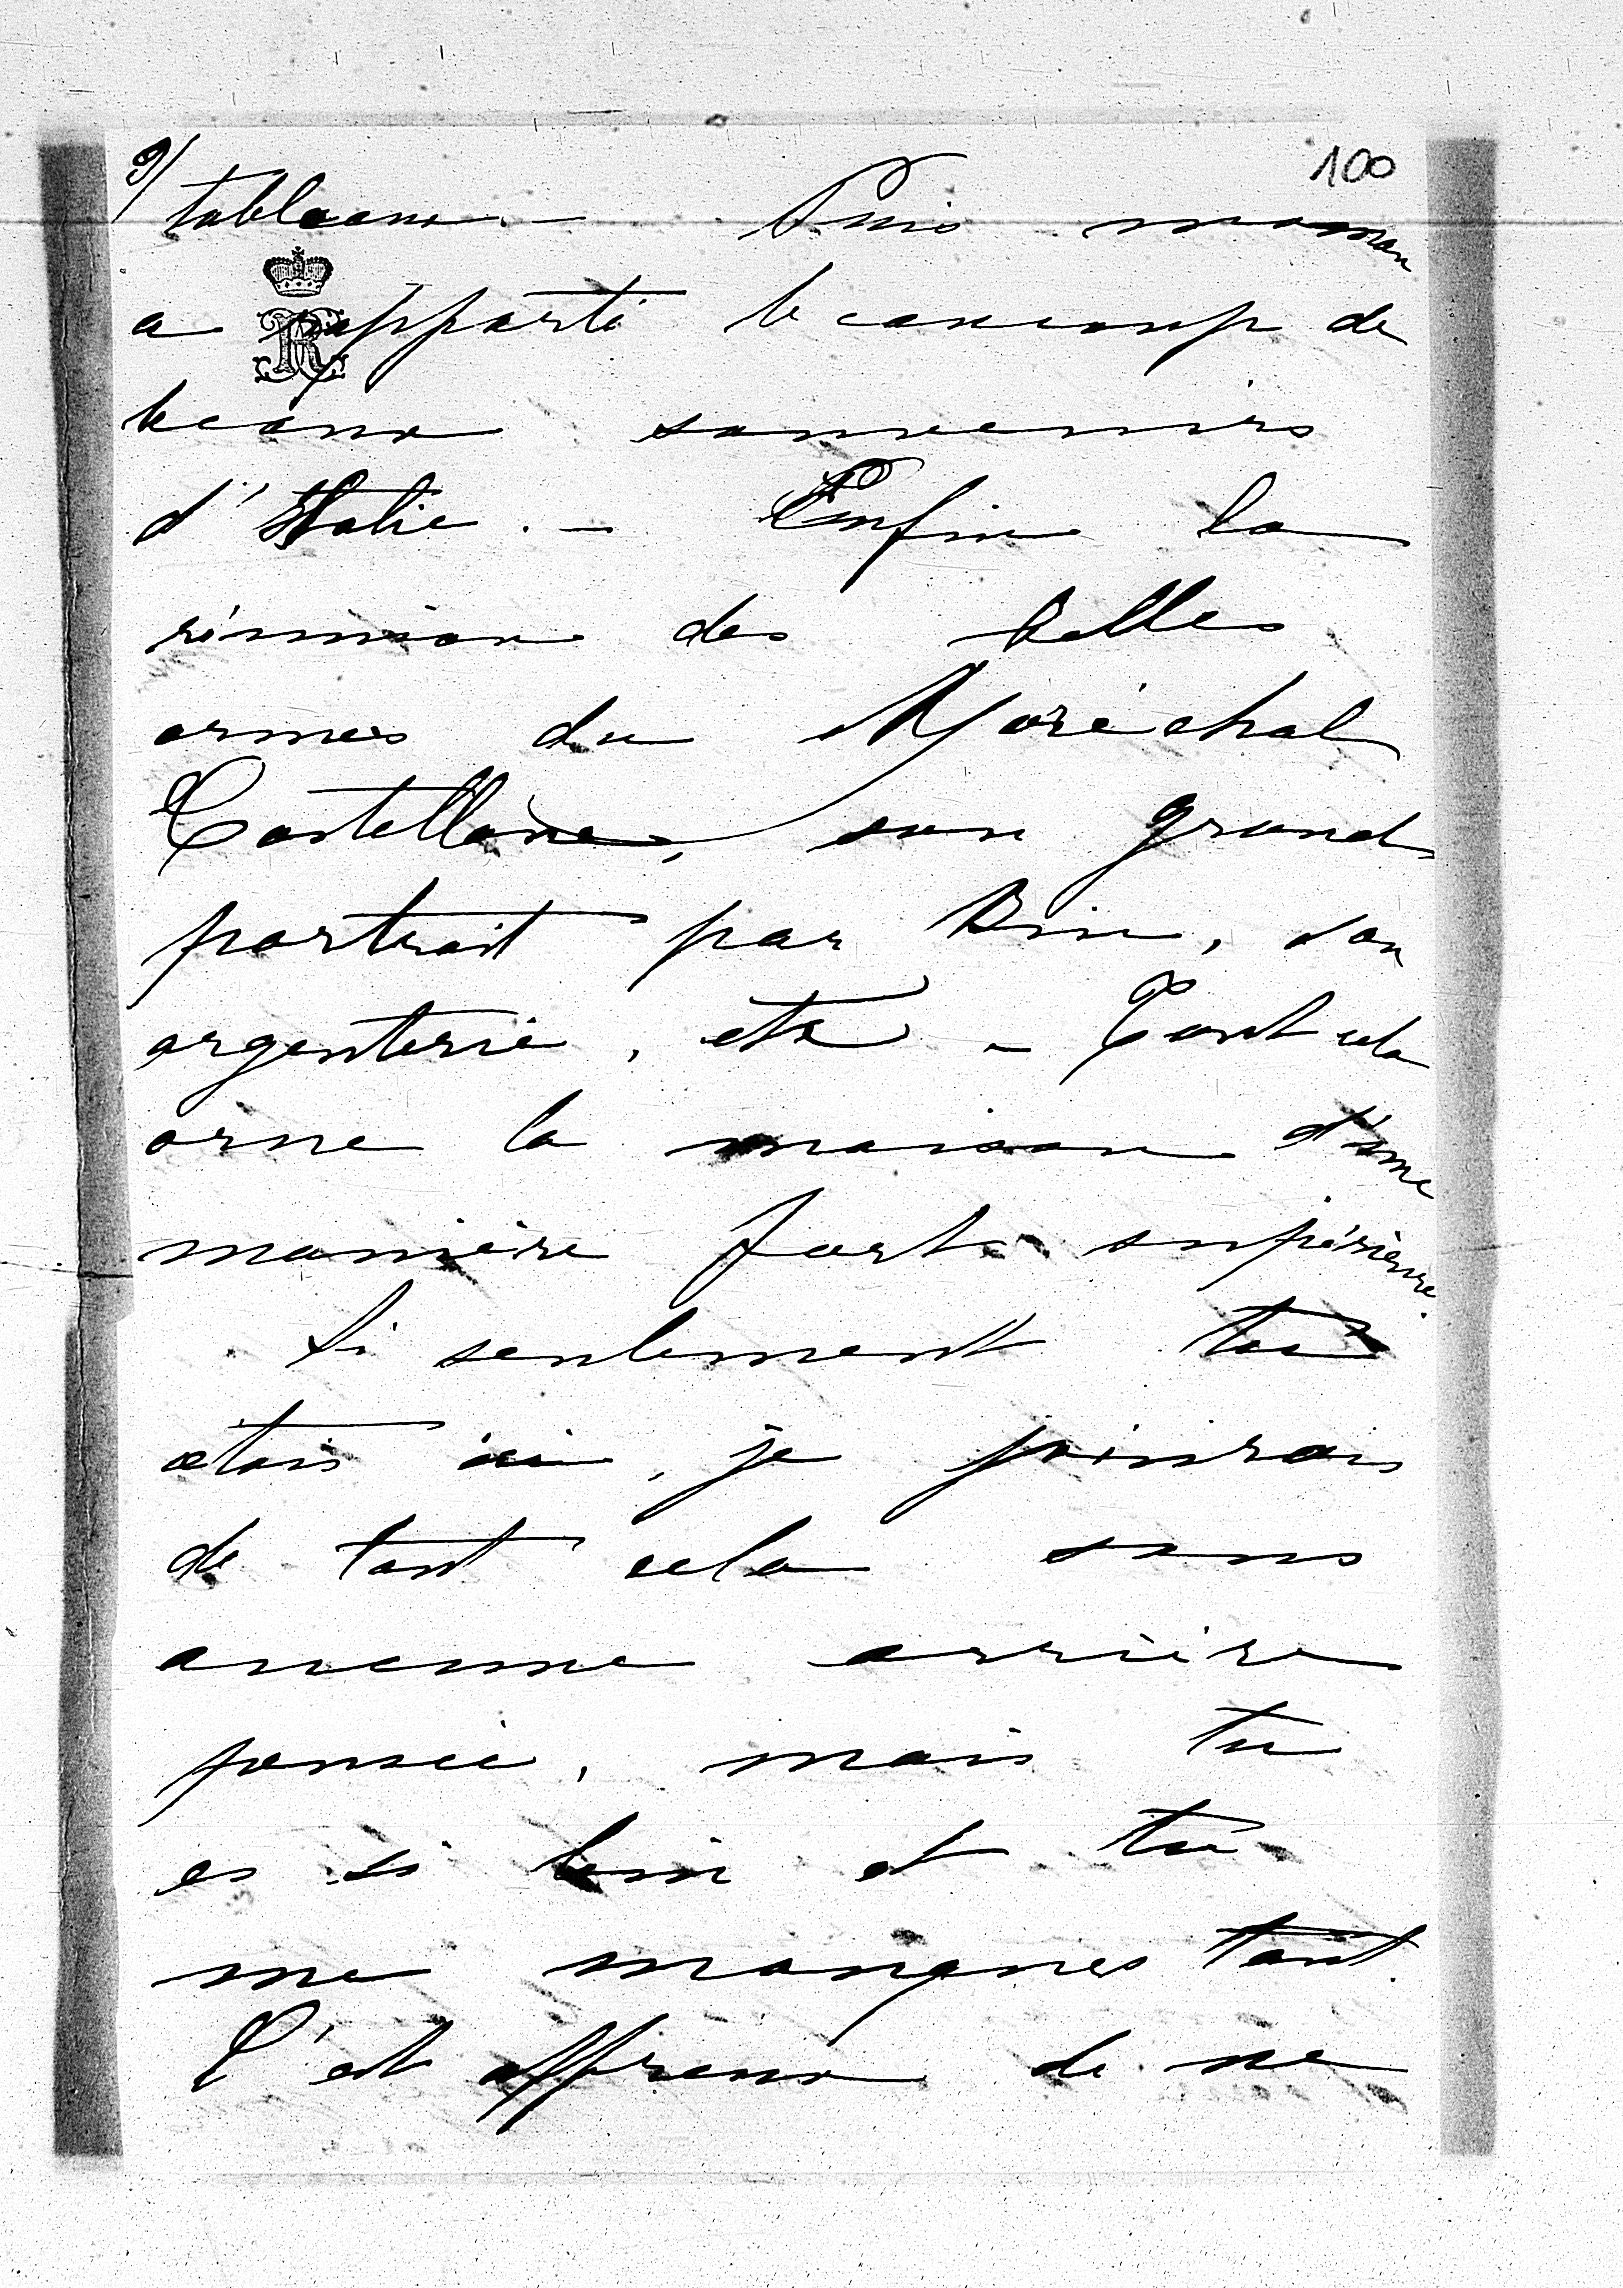 9/ 100
tableaux. - Puis maman
a rapporté beaucoup de
beaux souvenirs
d'Italie. - Enfin la
réunion des belles
armes du Maréchal
Castellane, son grand
portrait par Bin, son
argenterie, etc - Tout cela
orne la maison d'une
manière forte supérieure.
Si seulement tu
étais ici, je jouirais
de tout cela sans
aucune arrière
pensée, mais tu
es si loin et tu
me manques tant.
C'est affreux de ne